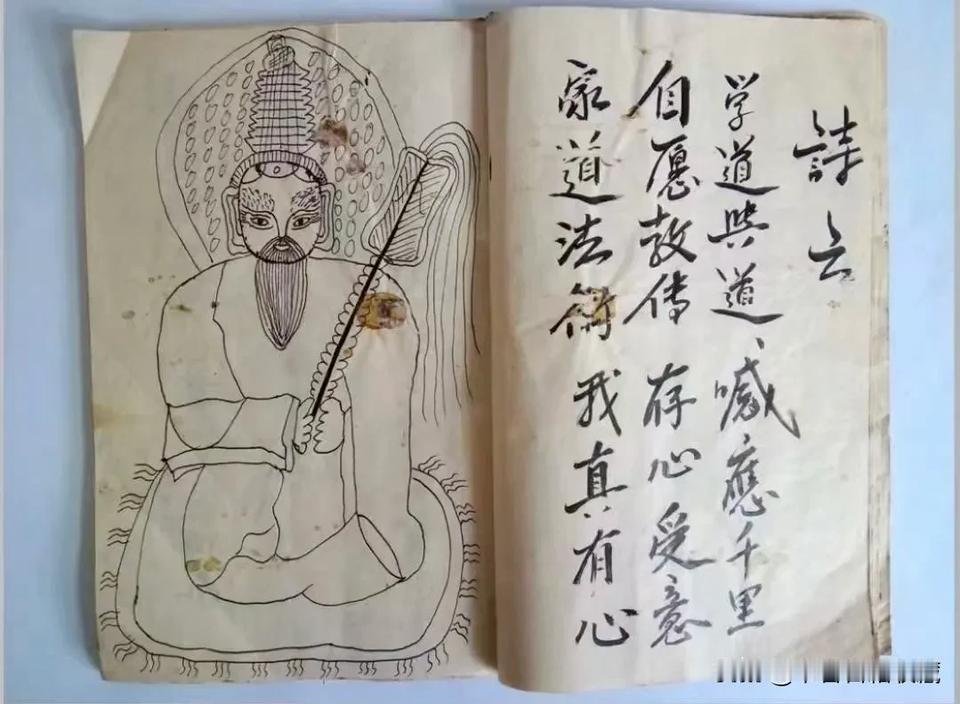 詩云
学道與道、喊應千里
自愿教傳 存心受意
家道法符 我真有心